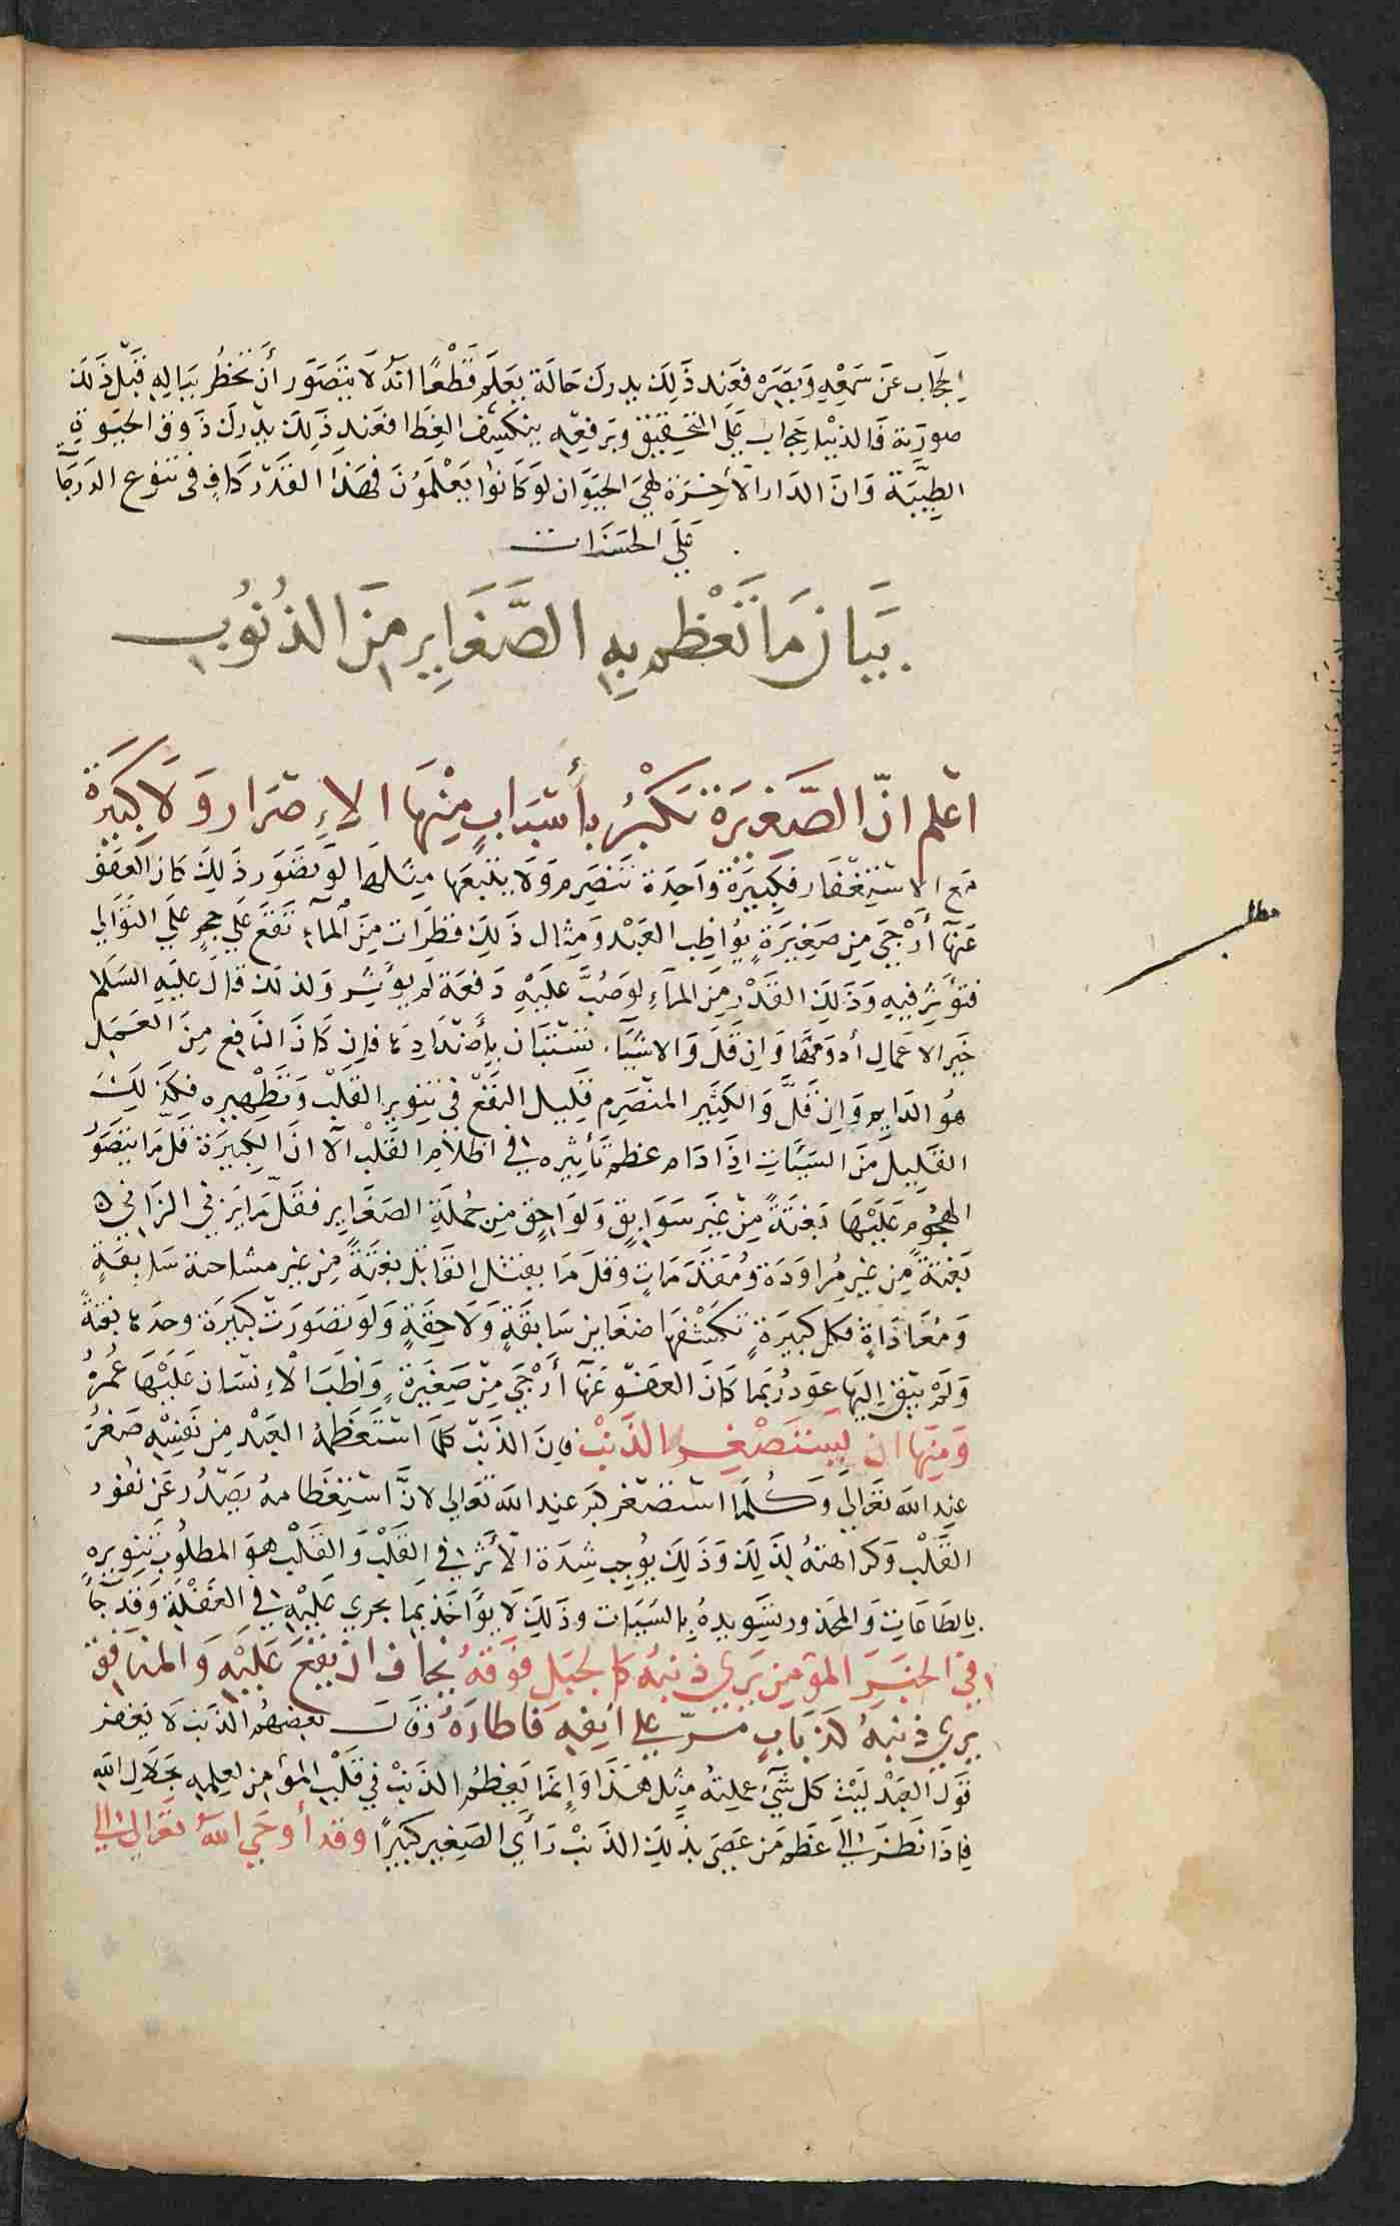 الحجاب عن سمعه وبصره فعند ذلك يدرك حالة يعلم قطعا انه لا يتصور أن تخطر بباله قبل ذلك
صورته فالدنيا حجاب على التحقيق وبرفعه ينكشف الغطا فعند ذلك يدرك ذوق الحيوة
الطيبة وان الدار الأخرة لهى الحيوان لو كانوا يعلمون فهذا القدر كاف في تنوع الدرجات
على الحسنات
بيان ما تعظم به الصغاير من الذنوب
اعلم ان الصغيرة تكبر بأسباب منها الإصرار ولا كبيرة
مع الاستغفار فكبيرة واحدة تنصرم ولا يتبعها مثلها لو تصور ذلك كان العفو
عنها أرجى من صغيرة يواظب العبد ومثال ذلك قطرات من الماء تقع على حجر على التوالى
فتؤثر فيه وذلك القدر من الماء لو صب عليه دفعة لم يؤثر ولذلك قال عليه السلام
خير الاعمال أدومها وان قل والاشياء تستبان بأضدادها فإن كان النافع من العمل
هو الدايم وان قل والكثير المنصرم قليل النفع في تنوير القلب وتطهيره فكذلك
القليل من السيئات اذا دام عظم تأثيره في اظلام القلب الا ان الكبيرة قل ما يتصور
الهجوم عليها بغتة من غير سوابق ولواحق من جملة الصغاير فقل ما يزني الزاني
بغتة من غير مراودة ومقدمات وقل ما يقتل القاتل بغتة من غير مشاحنة سابقة
ومعاداة فكل كبيرة تكتنفها صغاير سابقة ولاحقة ولو تصورت كبيرة وحدها بغتة
ولم يتفق اليها عود ربما كان العفو عنها أرجى من صغيرة واظب الإنسان عليها عمره
ومنها ان يستصغر الذنب فان الذنب كلما استعظمه العبد من نفسه صغر
عند الله تعالى وكلما استصغر كبر عند الله تعالى لان استعظامه يصدر عن نفور
القلب وكراهته لذلك وذلك يوجب شدة الأثر في القلب والقلب هو المطلوب تنويره
بالطاعات والمحذور تسويده بالسيات وذلك لا يؤاخذ بما يجري عليه في الغفلة وقد جا
في الخبر المؤمن يرى ذنبه كالجبل فوقه يخاف ان يقع عليه والمنافق
يرى ذنبه كذباب مر على انفه فاطاره وقال بعضهم الذنب لا يغفر
قول العبد ليت كل شيء عملته مثل هذا وإنما يعظم الذنب في قلب المؤمن لعلمه بجلال الله
فاذا نظر إلى عظم من عصى بذلك الذنب رأى الصغير كبيرا وقد أوحى الله تعالى إلى
مطلب